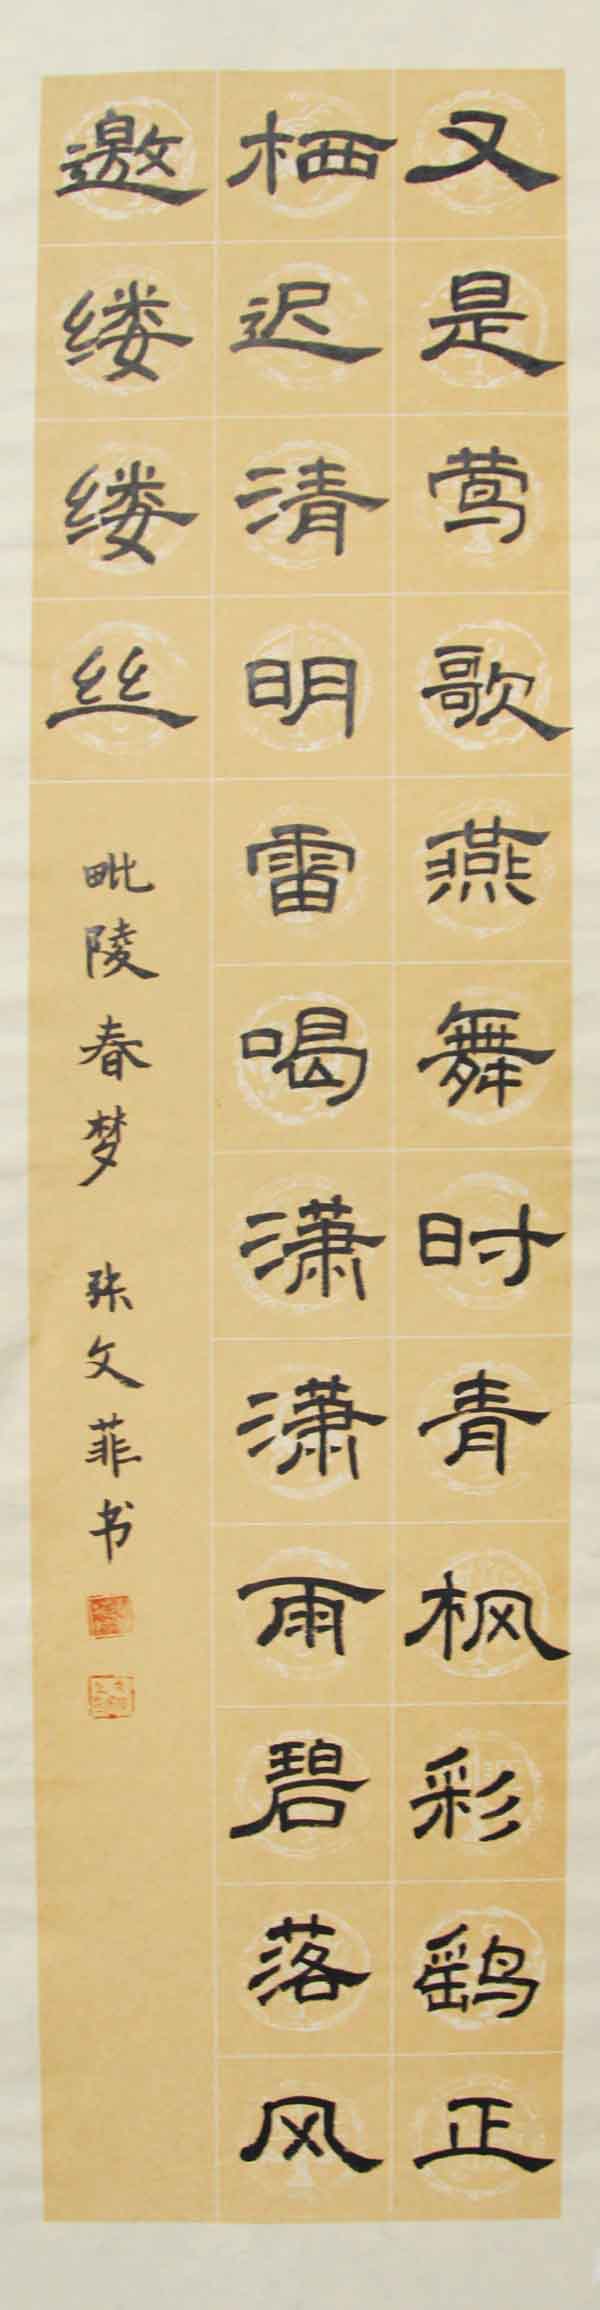 又是莺歌燕舞时青枫彩鹞正
栖迟清明雷喝潇潇雨碧落风
邀缕缕丝
毗陵春梦 张文菲书